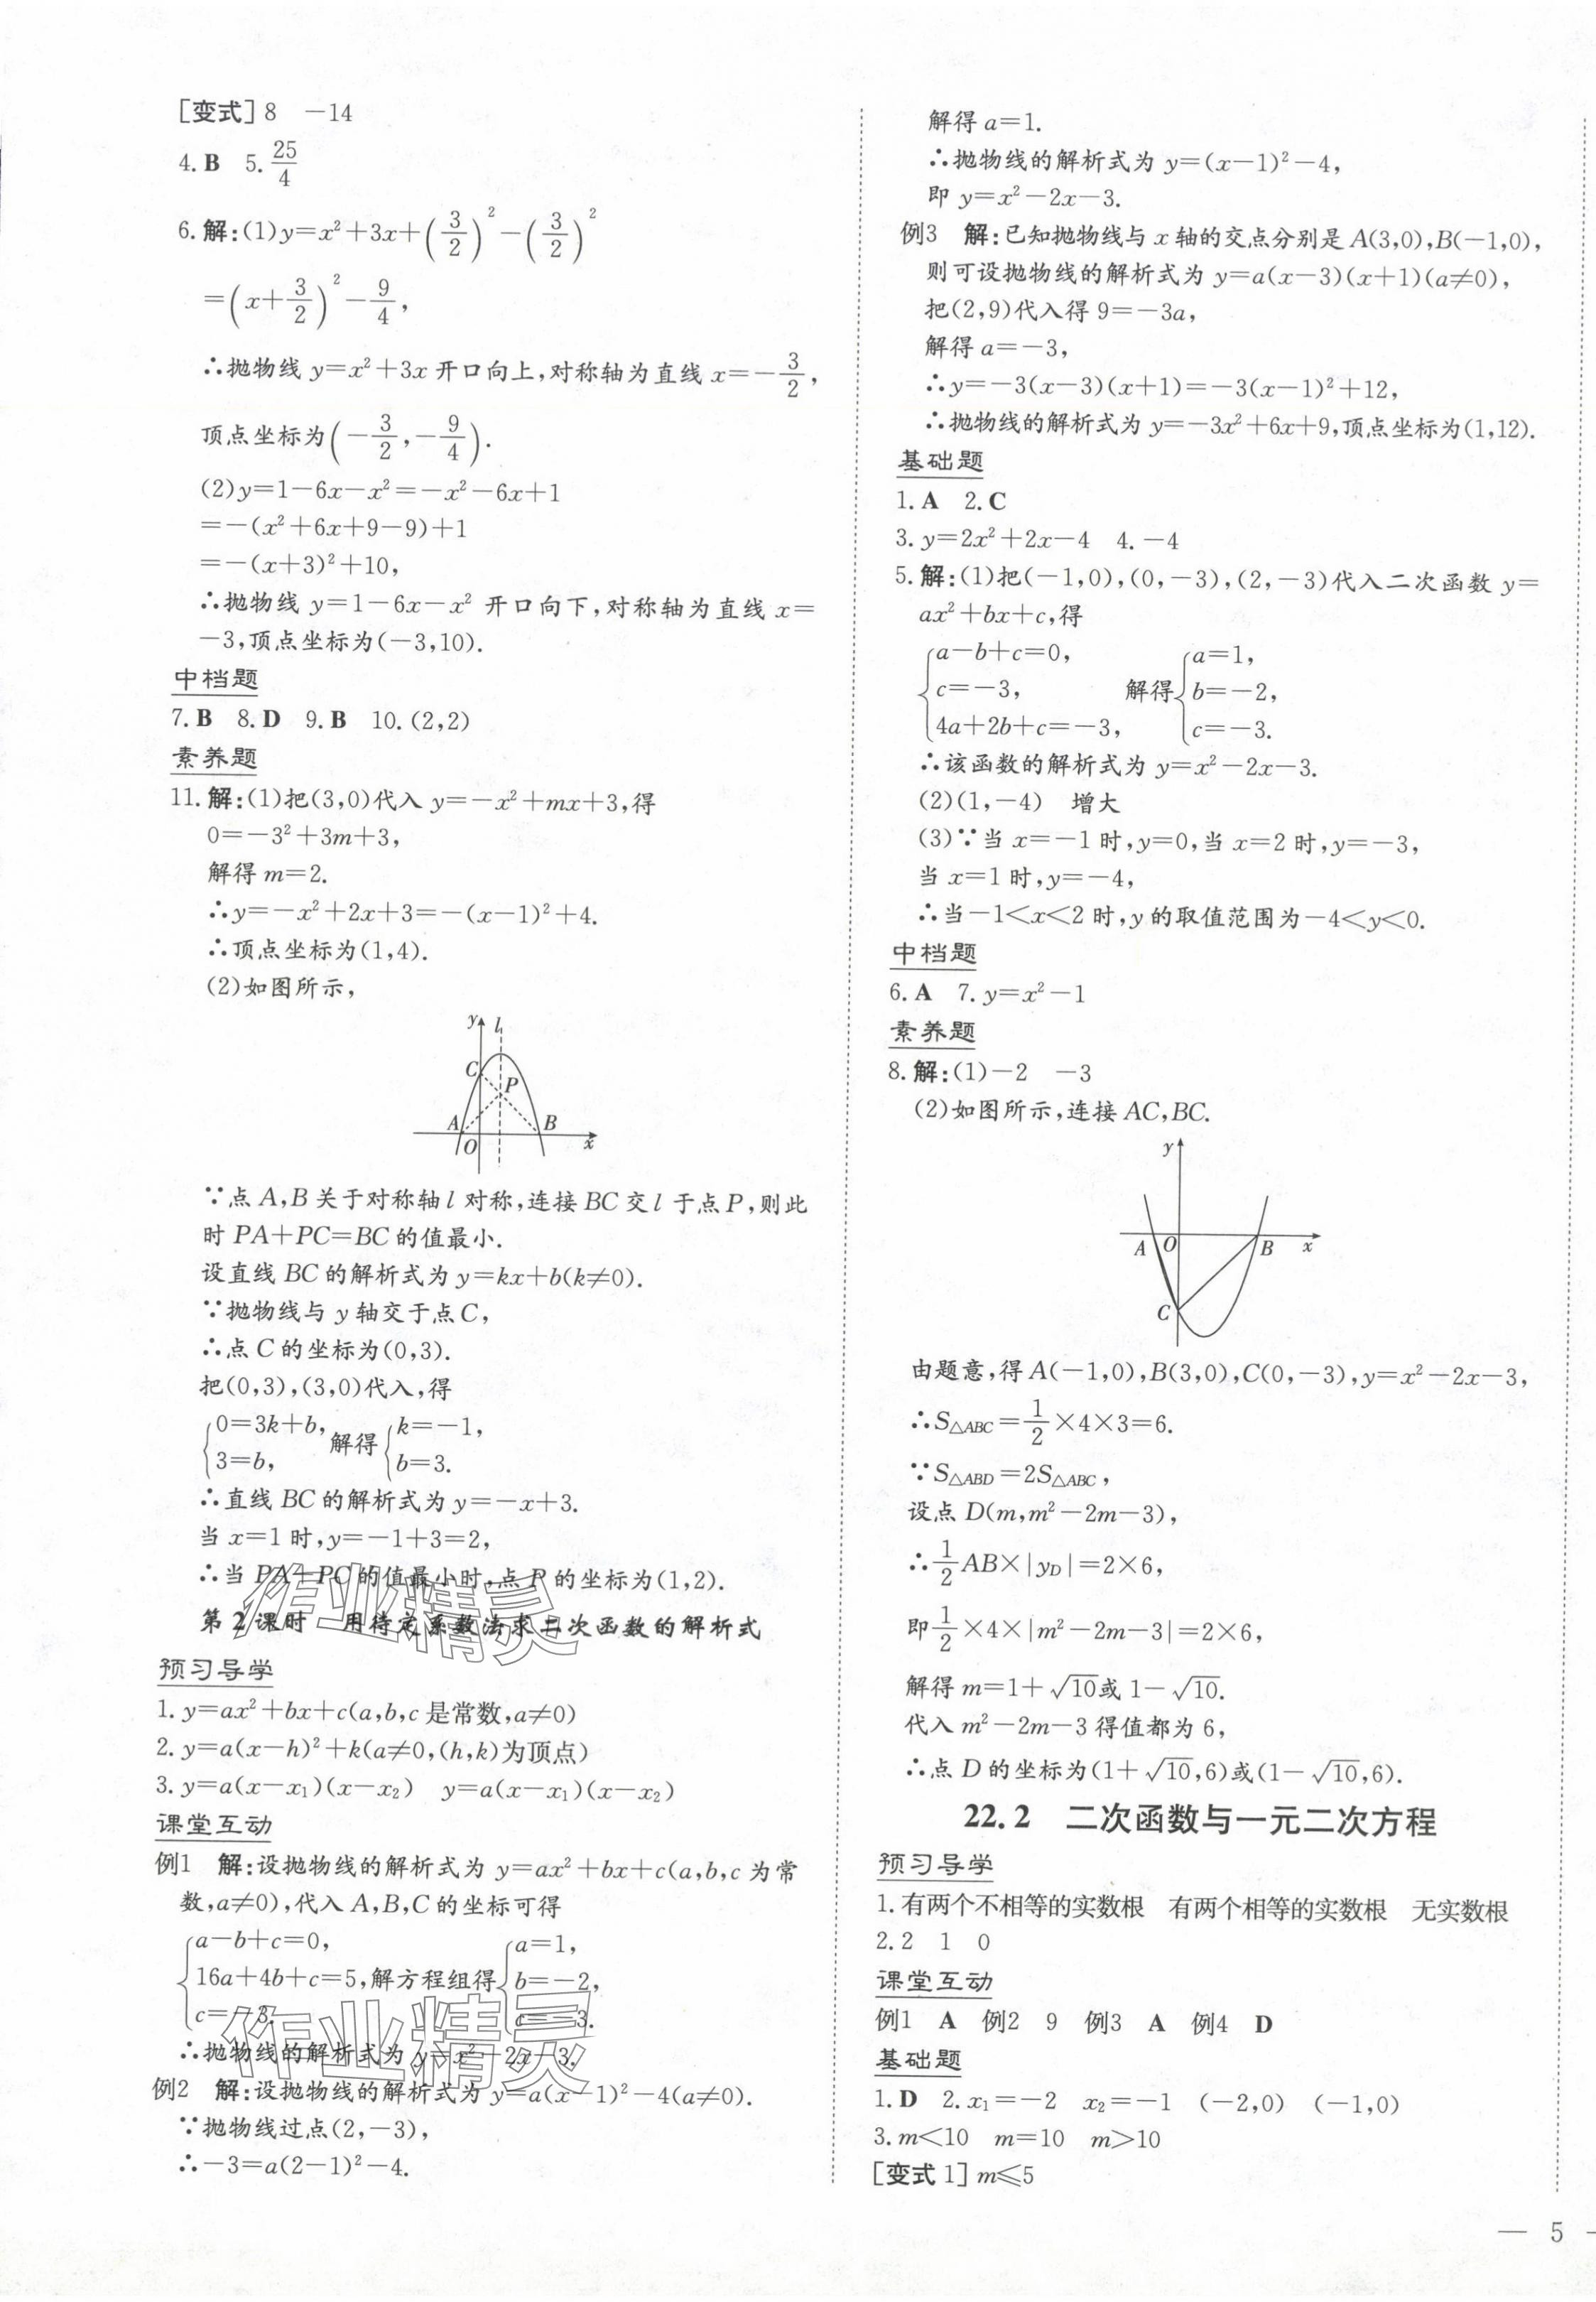 [变式] 8　－14
4. B　5. 25/4
6. 解:(1)y=x²+3x+(3/2)²－(3/2)²
=(x+3/2)²－9/4,
∴抛物线 y=x²+3x 开口向上,对称轴为直线 x=－3/2,
顶点坐标为(－3/2,－9/4).
(2)y=1－6x－x²=－x²－6x+1
=－(x²+6x+9－9)+1
=－(x+3)²+10,
∴抛物线 y=1－6x－x² 开口向下,对称轴为直线 x=
－3,顶点坐标为(－3,10).
中档题
7. B　8. D　9. B　10. (2,2)
素养题
11. 解:(1)把(3,0)代入 y=－x²+mx+3,得
0=－3²+3m+3,
解得 m=2.
∴y=－x²+2x+3=－(x－1)²+4.
∴顶点坐标为(1,4).
(2)如图所示,
y l
C
P
A
B
O
x
∵点 A,B 关于对称轴 l 对称,连接 BC 交 l 于点 P,则此
时 PA+PC=BC 的值最小.
设直线 BC 的解析式为 y=kx+b(k≠0).
∵抛物线与 y 轴交于点 C,
∴点 C 的坐标为(0,3).
把(0,3),(3,0)代入,得
{0=3k+b, 3=b, 解得 {k=－1, b=3.
∴直线 BC 的解析式为 y=－x+3.
当 x=1 时,y=－1+3=2,
∴当 PA+PC 的值最小时,点 P 的坐标为(1,2).
作业精灵
第 2 课时　用待定系数法求二次函数的解析式
预习导学
1. y=ax²+bx+c(a,b,c 是常数,a≠0)
2. y=a(x－h)²+k(a≠0,(h,k)为顶点)
3. y=a(x－x₁)(x－x₂)　y=a(x－x₁)(x－x₂)
课堂互动
例1　解:设抛物线的解析式为 y=ax²+bx+c(a,b,c 为常
数,a≠0),代入 A,B,C 的坐标可得
{a－b+c=0, 16a+4b+c=5, c=－3. 解方程组得 {a=1, b=－2, c=－3.
作业精灵
∴抛物线的解析式为 y=x²－2x－3.
例2　解:设抛物线的解析式为 y=a(x－1)²－4(a≠0).
∵抛物线过点(2,－3),
∴－3=a(2－1)²－4.
解得 a=1.
∴抛物线的解析式为 y=(x－1)²－4,
即 y=x²－2x－3.
例3　解:已知抛物线与 x 轴的交点分别是 A(3,0),B(－1,0),
则可设抛物线的解析式为 y=a(x－3)(x+1)(a≠0),
把(2,9)代入得 9=－3a,
解得 a=－3,
∴y=－3(x－3)(x+1)=－3(x－1)²+12,
∴抛物线的解析式为 y=－3x²+6x+9,顶点坐标为(1,12).
基础题
1. A　2. C
3. y=2x²+2x－4　4. －4
5. 解:(1)把(－1,0),(0,－3),(2,－3)代入二次函数 y=
ax²+bx+c,得
{a－b+c=0, c=－3, 4a+2b+c=－3, 解得 {a=1, b=－2, c=－3.
∴该函数的解析式为 y=x²－2x－3.
(2)(1,－4)　增大
(3)∵当 x=－1 时,y=0,当 x=2 时,y=－3,
当 x=1 时,y=－4,
∴当－1<x<2 时,y 的取值范围为－4<y<0.
中档题
6. A　7. y=x²－1
素养题
8. 解:(1)－2　－3
(2)如图所示,连接 AC,BC.
y
A O B x
C
由题意,得 A(－1,0),B(3,0),C(0,－3),y=x²－2x－3,
∴S△ABC=1/2×4×3=6.
∵S△ABD=2S△ABC,
设点 D(m,m²－2m－3),
∴1/2AB×|yD|=2×6,
即1/2×4×|m²－2m－3|=2×6,
解得 m=1+√10或 1－√10.
代入 m²－2m－3 得值都为 6,
∴点 D 的坐标为(1+√10,6)或(1－√10,6).
22.2　二次函数与一元二次方程
预习导学
1. 有两个不相等的实数根　有两个相等的实数根　无实数根
2. 2　1　0
课堂互动
例1　A　例2　9　例3　A　例4　D
基础题
1. D　2. x₁=－2　x₂=－1　(－2,0)　(－1,0)
3. m<10　m=10　m>10
[变式 1] m≤5
— 5 -